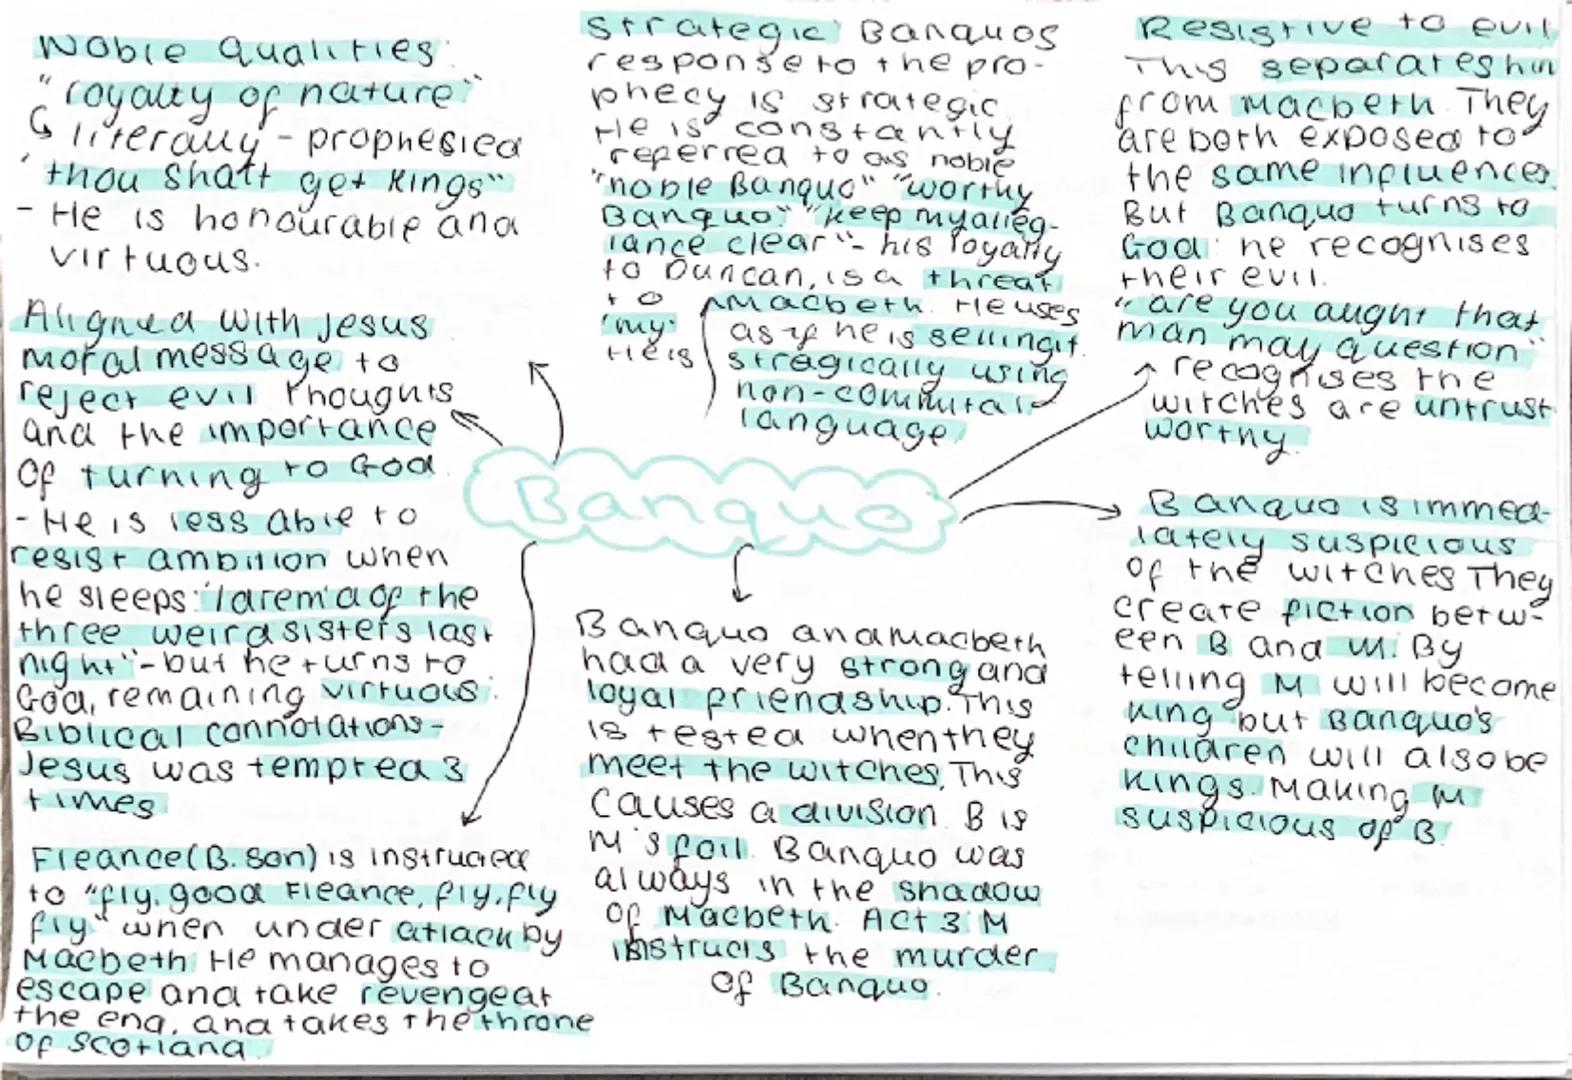 Noble Qualities:
"royalty of nature"
↳ literally - prophesied
'thou shalt get kings"
- He is honourable and
virtuous.
Aligned with Jesus
moral message to
reject evil thoughts
and the importance
of turning to God.
- He is less able to
resist ambition when
he sleeps: "I drem'd of the
three weird sisters last
night" - but he turns to
God, remaining virtuous.
Biblical connotations -
Jesus was tempted 3
times
Fleance (B. Son) is instructed
to "fly, good Fleance, fly, fly
fly" when under attack by
Macbeth. He manages to
escape and take revenge at
the end, and takes the throne
of Scotland.
Strategic Banquos
response to the pro-
phecy is strategic.
He is constantly
referred to as noble
"noble Banquo" "worthy
Banquo" "keep my alleg-
iance clear" - his loyalty
to Duncan, is a threat
to Macbeth. He uses
'my' as if he is selling it.
He is stragically using
non-commital
language.
Banquo
Banquo and Macbeth
had a very strong and
loyal friendship. This
is tested when they
meet the witches, This
causes a division. B is
M's foil. Banquo was
always in the shadow
of Macbeth. Act 3 M
instructs the murder
of Banquo.
Resistive to evil
This separates him
from Macbeth. They
are both exposed to
the same influences.
But Banquo turns to
God: he recognises
their evil.
"are you aught that
man may question"
recognises the
witches are untrust
worthy.
Banquo is immed-
iately suspicious
of the witches They
create fiction betw-
een B and M. By
telling M will become
king but Banquo's
children will also be
kings. Making M
suspicious of B.